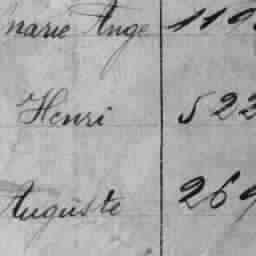 marie Ange 119
Henri 522
Auguste 269